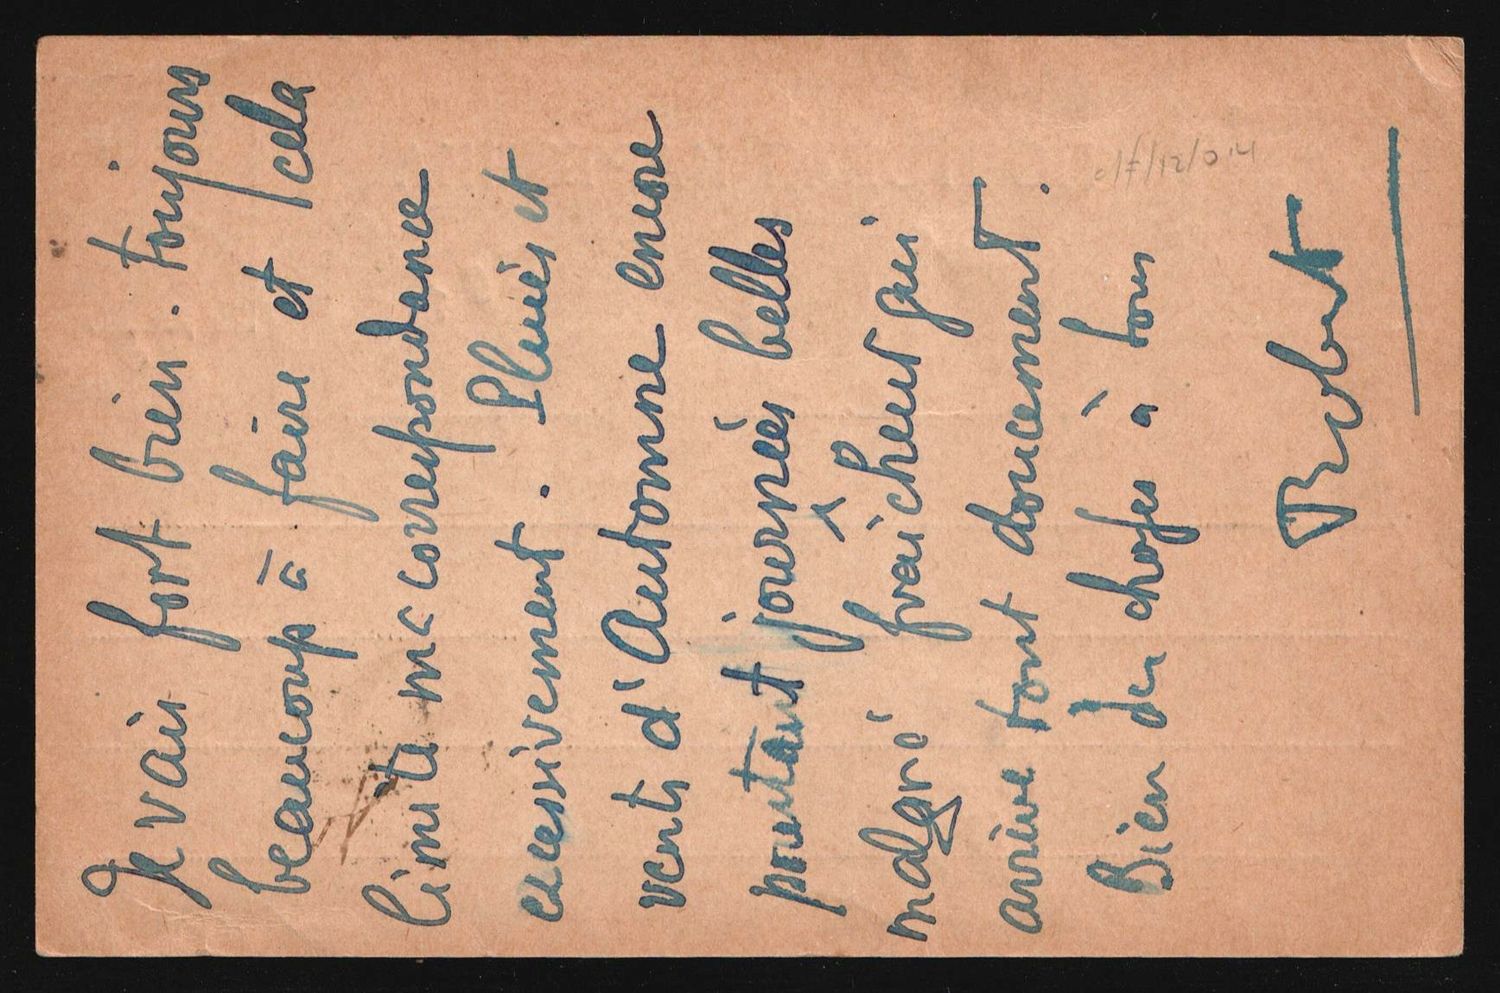 Je vais fort bien. toujours
beaucoup à faire et cela
limite ma correspondance
excessivement. Pluies et
vents d'Automne encore
pourtant journées belles
malgré fraîcheur qui
arrive tout doucement.
Bien des choses à tous
Robert